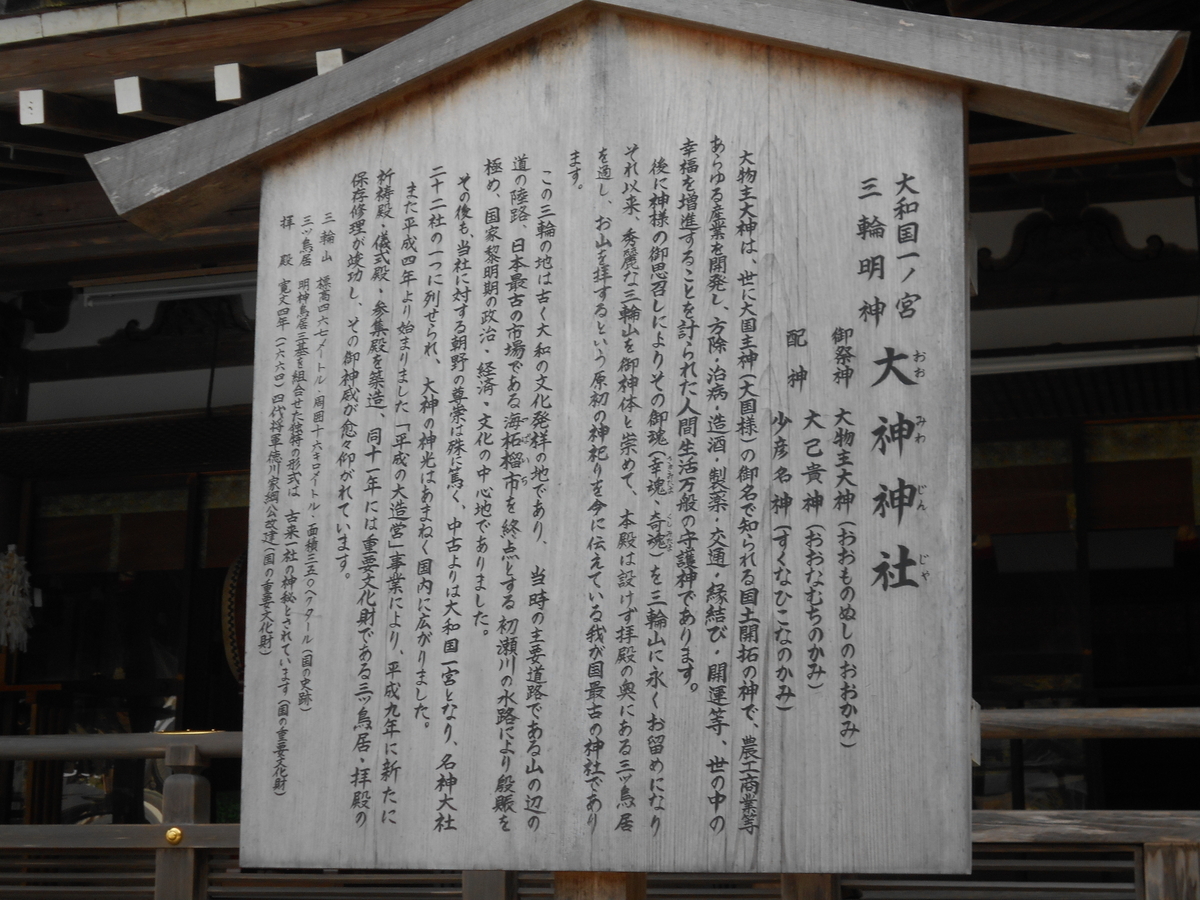 大和国一ノ宮
三輪明神
大神神社
おお みわ じん じゃ
御祭神 大物主大神(おおものぬしのおおかみ)
大己貴神(おおなむちのかみ)
配神 少彦名神(すくなひこなのかみ)
大物主大神は、世に大国主神(大国様)の御名で知られる国土開拓の神で、農工商業等
あらゆる産業を開発し、方除・治病・造酒・製薬・交通・縁結び・開運等、世の中の
幸福を増進することを計られた人間生活万般の守護神であります。
後に神様の御思召しによりその御魂(幸魂 奇魂)を三輪山に永くお留めになり
それ以来、秀麗な三輪山を御神体と崇めて、本殿は設けず拝殿の奥にある三ッ鳥居
を通し、お山を拝するという原初の神祀りを今に伝えている我が国最古の神社であり
ます。
この三輪の地は古く大和の文化発祥の地であり、当時の主要道路である山の辺の
道の陸路、日本最古の市場である海柘榴市を終点とする初瀬川の水路により殷賑を
つばいち
極め、国家黎明期の政治・経済・文化の中心地でありました。
その後も、当社に対する朝野の尊崇は殊に篤く、中古よりは大和国一宮となり、名神大社
二十二社の一つに列せられ、大神の神光はあまねく国内に広がりました。
また平成四年より始まりました「平成の大造営」事業により、平成九年に新たに
祈祷殿・儀式殿・参集殿を築造、同十一年には重要文化財である三ッ鳥居・拝殿の
保存修理が竣功し、その御神威が愈々仰がれています。
三輪山 標高四六七メートル・周囲十六キロメートル・面積三五〇ヘクタール(国の史跡)
三ッ鳥居 明神鳥居三基を組合せた独特の形式は、古来一社の神秘とされています(国の重要文化財)
拝殿 寛文四年(一六六四)四代将軍徳川家綱公改建(国の重要文化財)